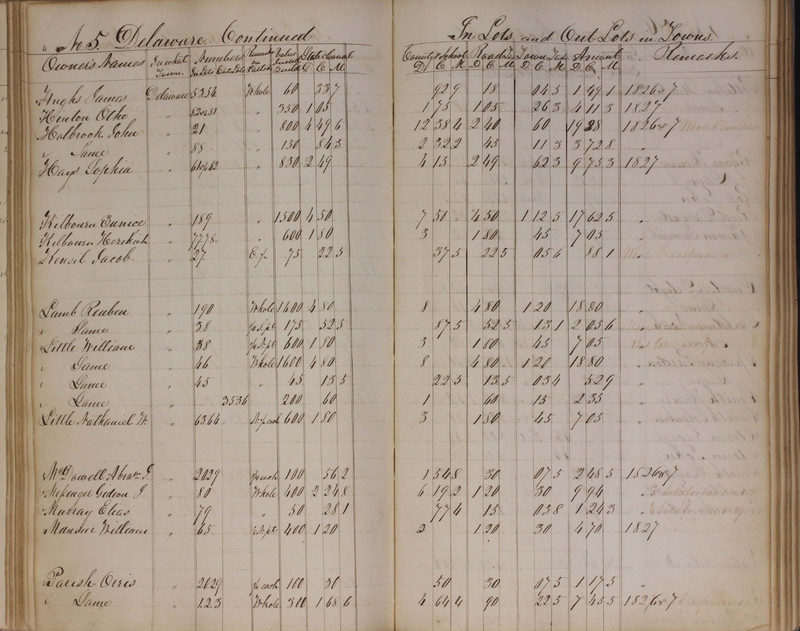 No 5. Delaware Continued In Lots and Out Lots in Towns.
Owners Names In what Town. Numbers In Lots Out Lots Value State Canal County & School Road Town Tax Amount Remarks.
Hughs James Delaware 5354 Whole 60 33 7 92 9 18 04 5 1 49 1 1826&7
Henton Otho " " 350 1 05 1 75 1 05 26 3 4 11 3 1827
Holbrook John " 21 " 800 4 49 6 12 38 4 2 40 60 19 88 1826&7
" Same " 88 " 150 84 3 2 32 2 45 11 3 3 72 8 "
Hays Sophia " 61&62 " 830 2 49 4 15 2 49 62 3 9 75 3 1827
Kilbourn Eunice " 189 " 1500 4 50 7 50 4 50 1 12 5 17 62 5 "
Kilbourn Hezekiah " 77 78 " 600 1 80 3 1 80 45 7 05 "
Kensil Jacob " 27 75 22 5 37 5 22 5 05 6 88 1 "
Lamb Reuben " 190 Whole 1600 4 80 8 4 80 1 20 18 80 "
" Same " 38 175 52 5 87 5 52 5 13 1 2 05 6 "
Little William " 38 600 1 80 3 1 80 45 7 05 "
" Same " 46 Whole 1600 4 80 8 4 80 1 20 18 80 "
" Same " 45 " 45 13 5 22 5 13 5 03 4 52 9 "
" Same " 3536 200 60 1 60 15 2 35 "
Little Nathaniel W " 6364 600 1 80 3 1 80 45 7 05 "
McDowell " 2029 100 56 2 1 54 8 30 07 5 2 48 5 1826&7
Messenger Gideon " 80 Whole 400 2 24 8 6 19 2 1 20 30 9 94 "
Murray Elias " 79 " 50 28 1 77 4 15 03 8 1 24 3 "
William " 65 400 1 20 2 1 20 30 4 70 1827
Parish Orris " 2029 100 30 50 30 07 5 1 17 5 "
" Same " 123 Whole 300 1 68 6 4 64 4 90 22 5 7 45 5 1826&7